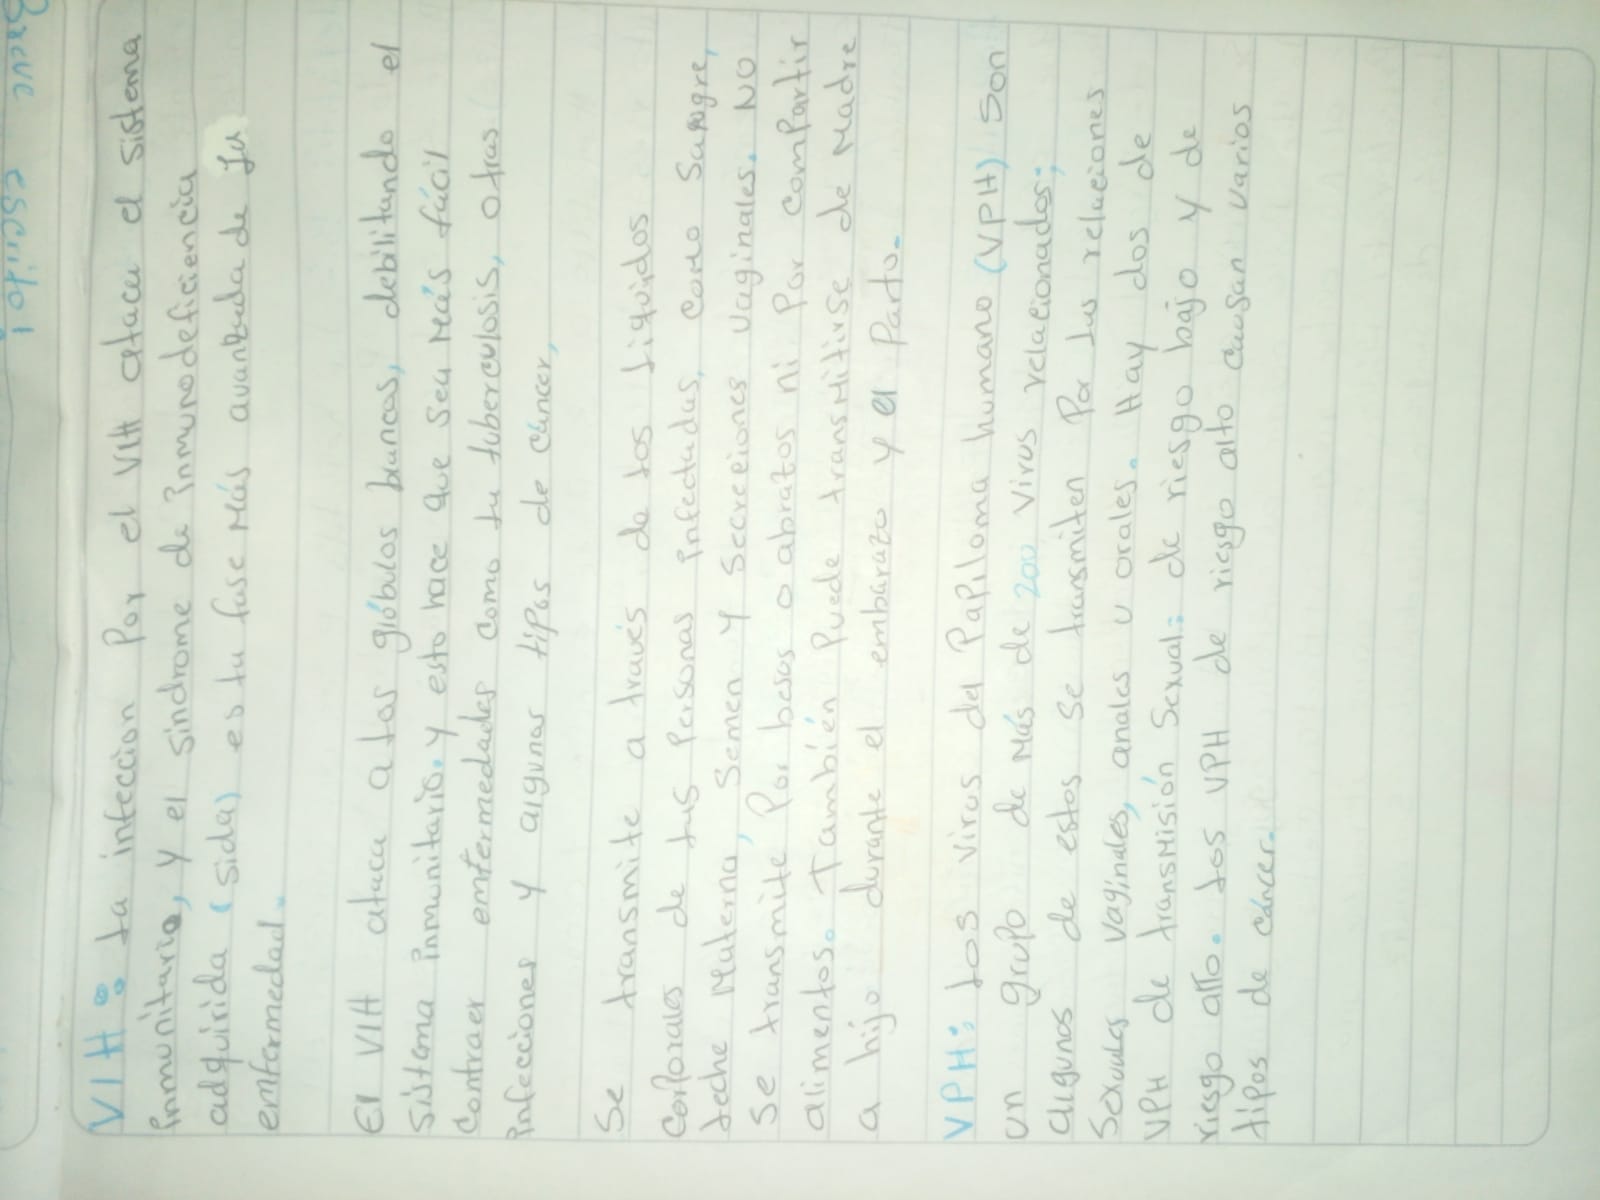 VIH: La infeccion Por el VIH ataca el Sistema
inmunitario, y el Síndrome de inmunodeficiencia
adquirida (Sida) es la fase Más avanzada de la
enfermedad.
El VIH ataca a los glóbulos blancos, debilitando el
Sistema inmunitario. y esto hace que sea Más fácil
Contraer enfermedades como la tuberculosis, otras
infecciones y algunos tipos de cáncer,
Se transmite a través de los liquidos
Corporales de las Personas infectadas, como Sangre,
Leche Materna, Semen y Secreciones vaginales. NO
Se transmite Por besos o abrazos ni Por compartir
alimentos. También Puede transmitirse de Madre
a hijo durante el embarazo y el Parto.
VPH: Los virus del Papiloma humano (VPH) Son
un grupo de Más de 200 virus relacionados;
algunos de estos Se transmiten Por las relaciones
Sexuales vaginales, anales u orales. Hay dos de
VPH de transmisión Sexual: de riesgo bajo y de
riesgo alto. Los VPH de riesgo alto causan varios
tipos de cáncer.